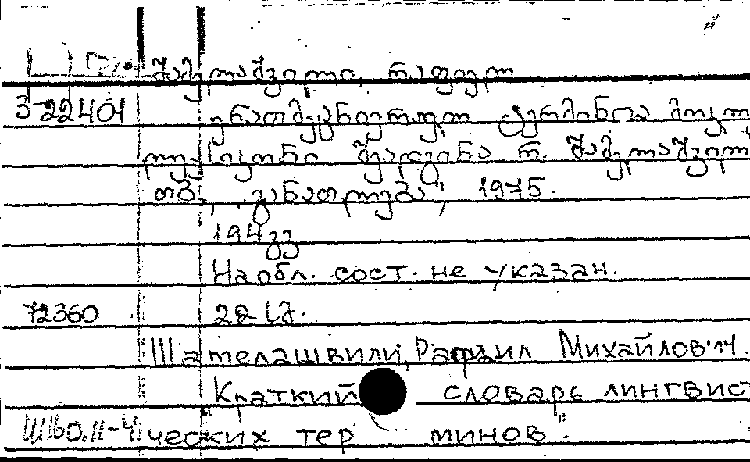 შატელაშვილი, რაფიელ
3-22401 ენათმეცნიერულ ტერმინთა მოკლე
ლექსიკონი შეადგინა რ. შატელაშვილმა
თბ., „განათლება", 1975.
194 გვ
На обл. сост. не указан.
72360 28 კ.
Шателашвили, Рафаил Михайлович.
"Краткий словарь лингвис
ческих терминов".